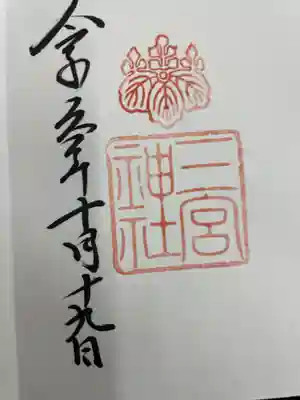 令和五年十月十九日
二宮
神社